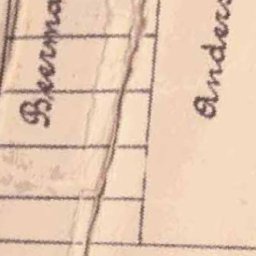 Beerma
Anders